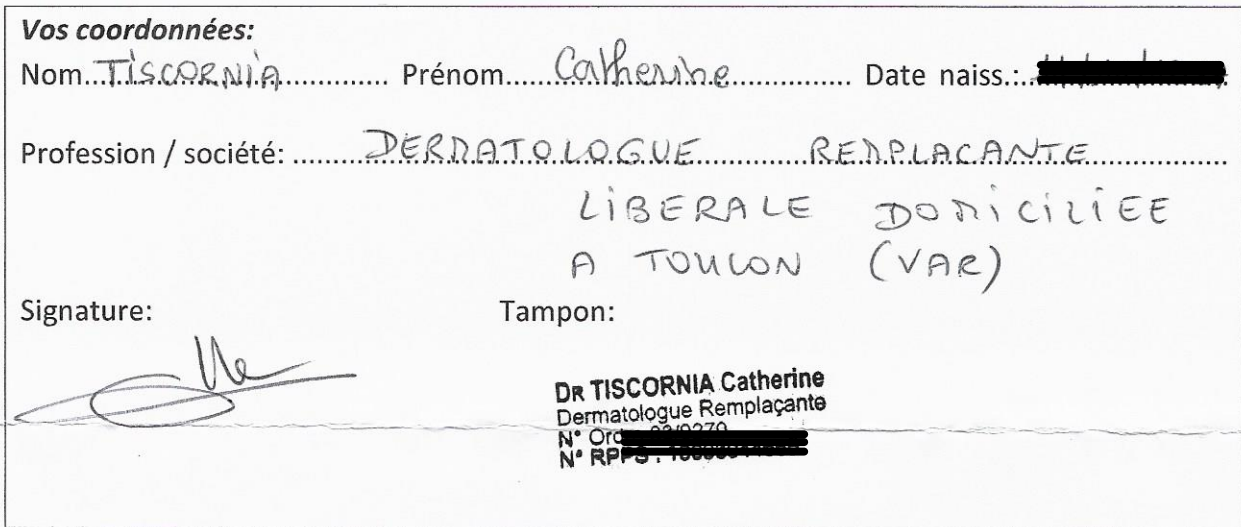 Vos coordonnées:
Nom..TISCORNIA............... Prénom......Catherine............... Date naiss.:..
Profession / société: .........DERMATOLOGUE.......... REMPLACANTE...............
LIBERALE DOMICILIEE
A TOULON (VAR)
Signature: Tampon:
DR TISCORNIA Catherine
Dermatologue Remplaçante
N° Ord
N° RPPS :